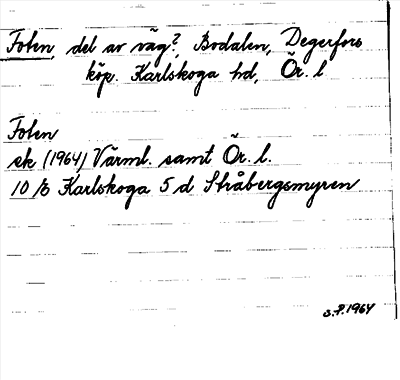 Foten, del av väg?, Bodalen, Degerfors
köp. Karlskoga hd, Ör. l
Foten
ek (1964) Värml. samt Ör. l.
10 E Karlskoga 5 d Stråbergsmyren
S.P. 1964